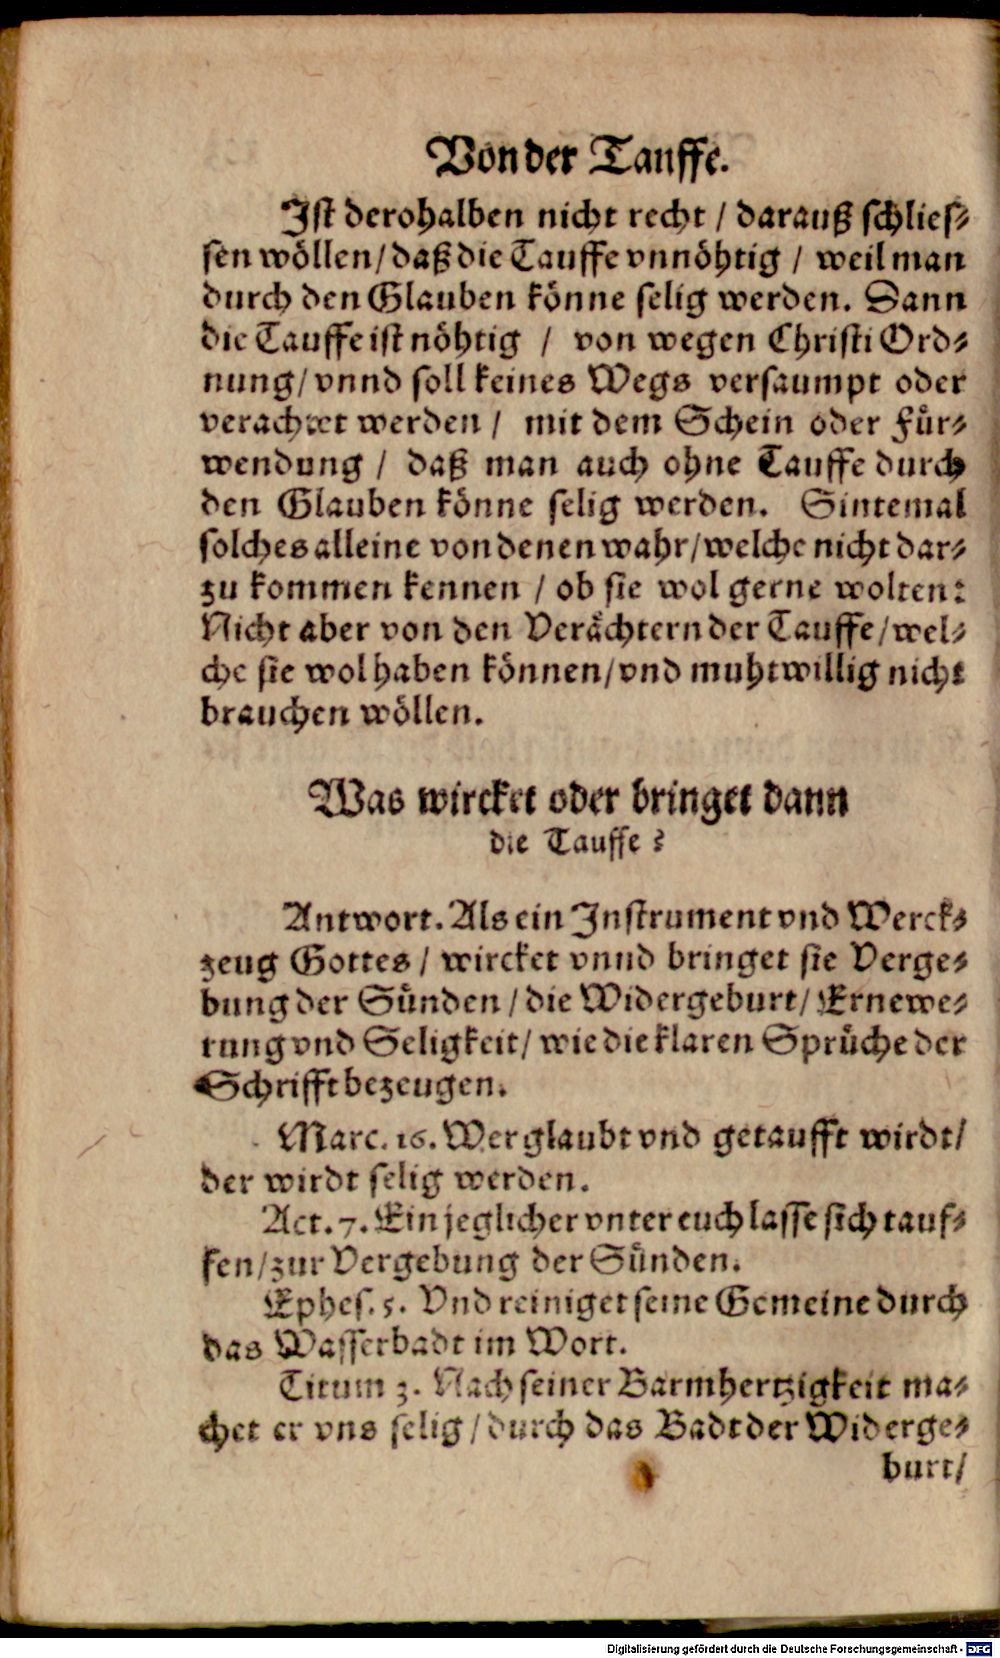 Von der Tauffe.
Ist derohalben nicht recht / darauß schlies⸗
sen wöllen / daß die Tauffe vnnöhtig / weil man
durch den Glauben könne selig werden. Dann
die Tauffe ist nöhtig / von wegen Christi Ord⸗
nung / vnnd soll keines Wegs versaumpt oder
verachtet werden / mit dem Schein oder Für⸗
wendung / daß man auch ohne Tauffe durch
den Glauben könne selig werden. Sintemal
solches alleine von denen wahr / welche nicht dar⸗
zu kommen kennen / ob sie wol gerne wolten:
Nicht aber von den Verächtern der Tauffe / wel⸗
che sie wol haben können / vnd muhtwillig nicht
brauchen wöllen.
Was wircket oder bringet dann
die Tauffe?
Antwort. Als ein Instrument vnd Werck⸗
zeug Gottes / wircket vnnd bringet sie Verge⸗
bung der Sünden / die Widergeburt / Ernewe⸗
rung vnd Seligkeit / wie die klaren Sprüche der
Schrifft bezeugen.
Marc. 16. Wer glaubt vnd getaufft wirdt /
der wirdt selig werden.
Act. 7. Ein jeglicher vnter euch lasse sich tauf⸗
fen / zur Vergebung der Sünden.
Ephes. 5. Vnd reiniget seine Gemeine durch
das Wasserbadt im Wort.
Titum 3. Nach seiner Barmhertzigkeit ma⸗
chet er vns selig / durch das Badt der Widerge⸗
burt /
Digitalisierung gefördert durch die Deutsche Forschungsgemeinschaft - DFG